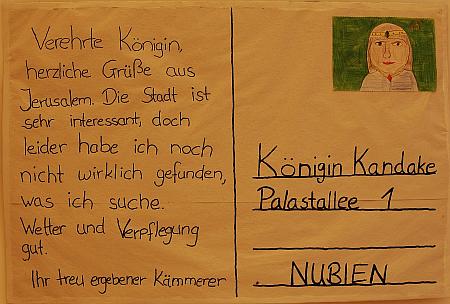 Verehrte Königin,
herzliche Grüße aus
Jerusalem. Die Stadt ist
sehr interessant, doch
leider habe ich noch
nicht wirklich gefunden,
was ich suche.
Wetter und Verpflegung
gut.
Ihr treu ergebener Kämmerer
Königin Kandake
Palastallee 1
NUBIEN